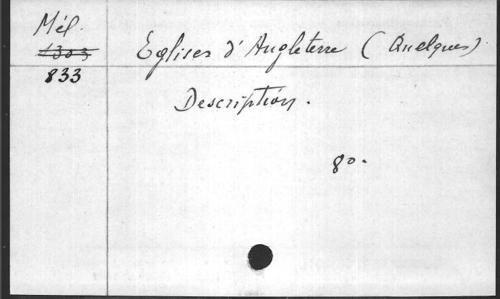 Mél.
1303
833
Eglises d'Angleterre (Quelques)
Description.
8o.